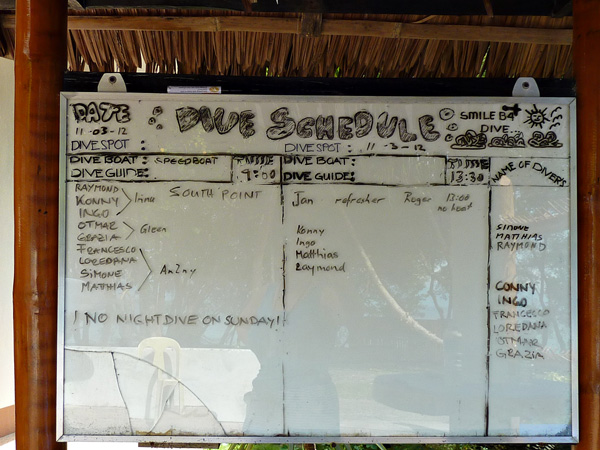 DATE : DIVE SCHEDULE
SMILE B4
DIVE...
11-03-12
DIVE SPOT :
DIVE SPOT : 11-3-12
DIVE BOAT : SPEEDBOAT
DIVE GUIDE:
TIME
9:00
DIVE BOAT:
DIVE GUIDE:
TIME
13:30
NAME OF DIVER'S
SOUTH POINT
RAYMOND
KONNY
INGO
Inna
OTMAR
GRAZIA
Gleen
FRANCESCO
LOREDANA
SIMONE
MATTHIAS
! NO NIGHTDIVE ON SUNDAY!
Jan refresher Roger 13:00
no boat
Konny
Ingo
Matthias
Raymond
SIMONE
MATTHIAS
RAYMOND
CONNY
INGO
FRANCESCO
LOREDANA
OTMAR
GRAZIA